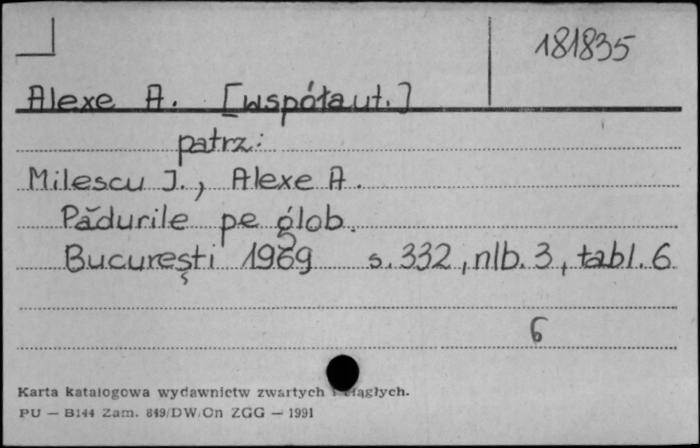 181835
Alexe A. [współaut.]
patrz:
Milescu J., Alexe A.
Pădurile pe glob.
București 1969 s. 332, nlb. 3, tabl. 6
6
Karta katalogowa wydawnictw zwartych i ciągłych.
PU — B144 Zam. 849/DW/On ZGG — 1991